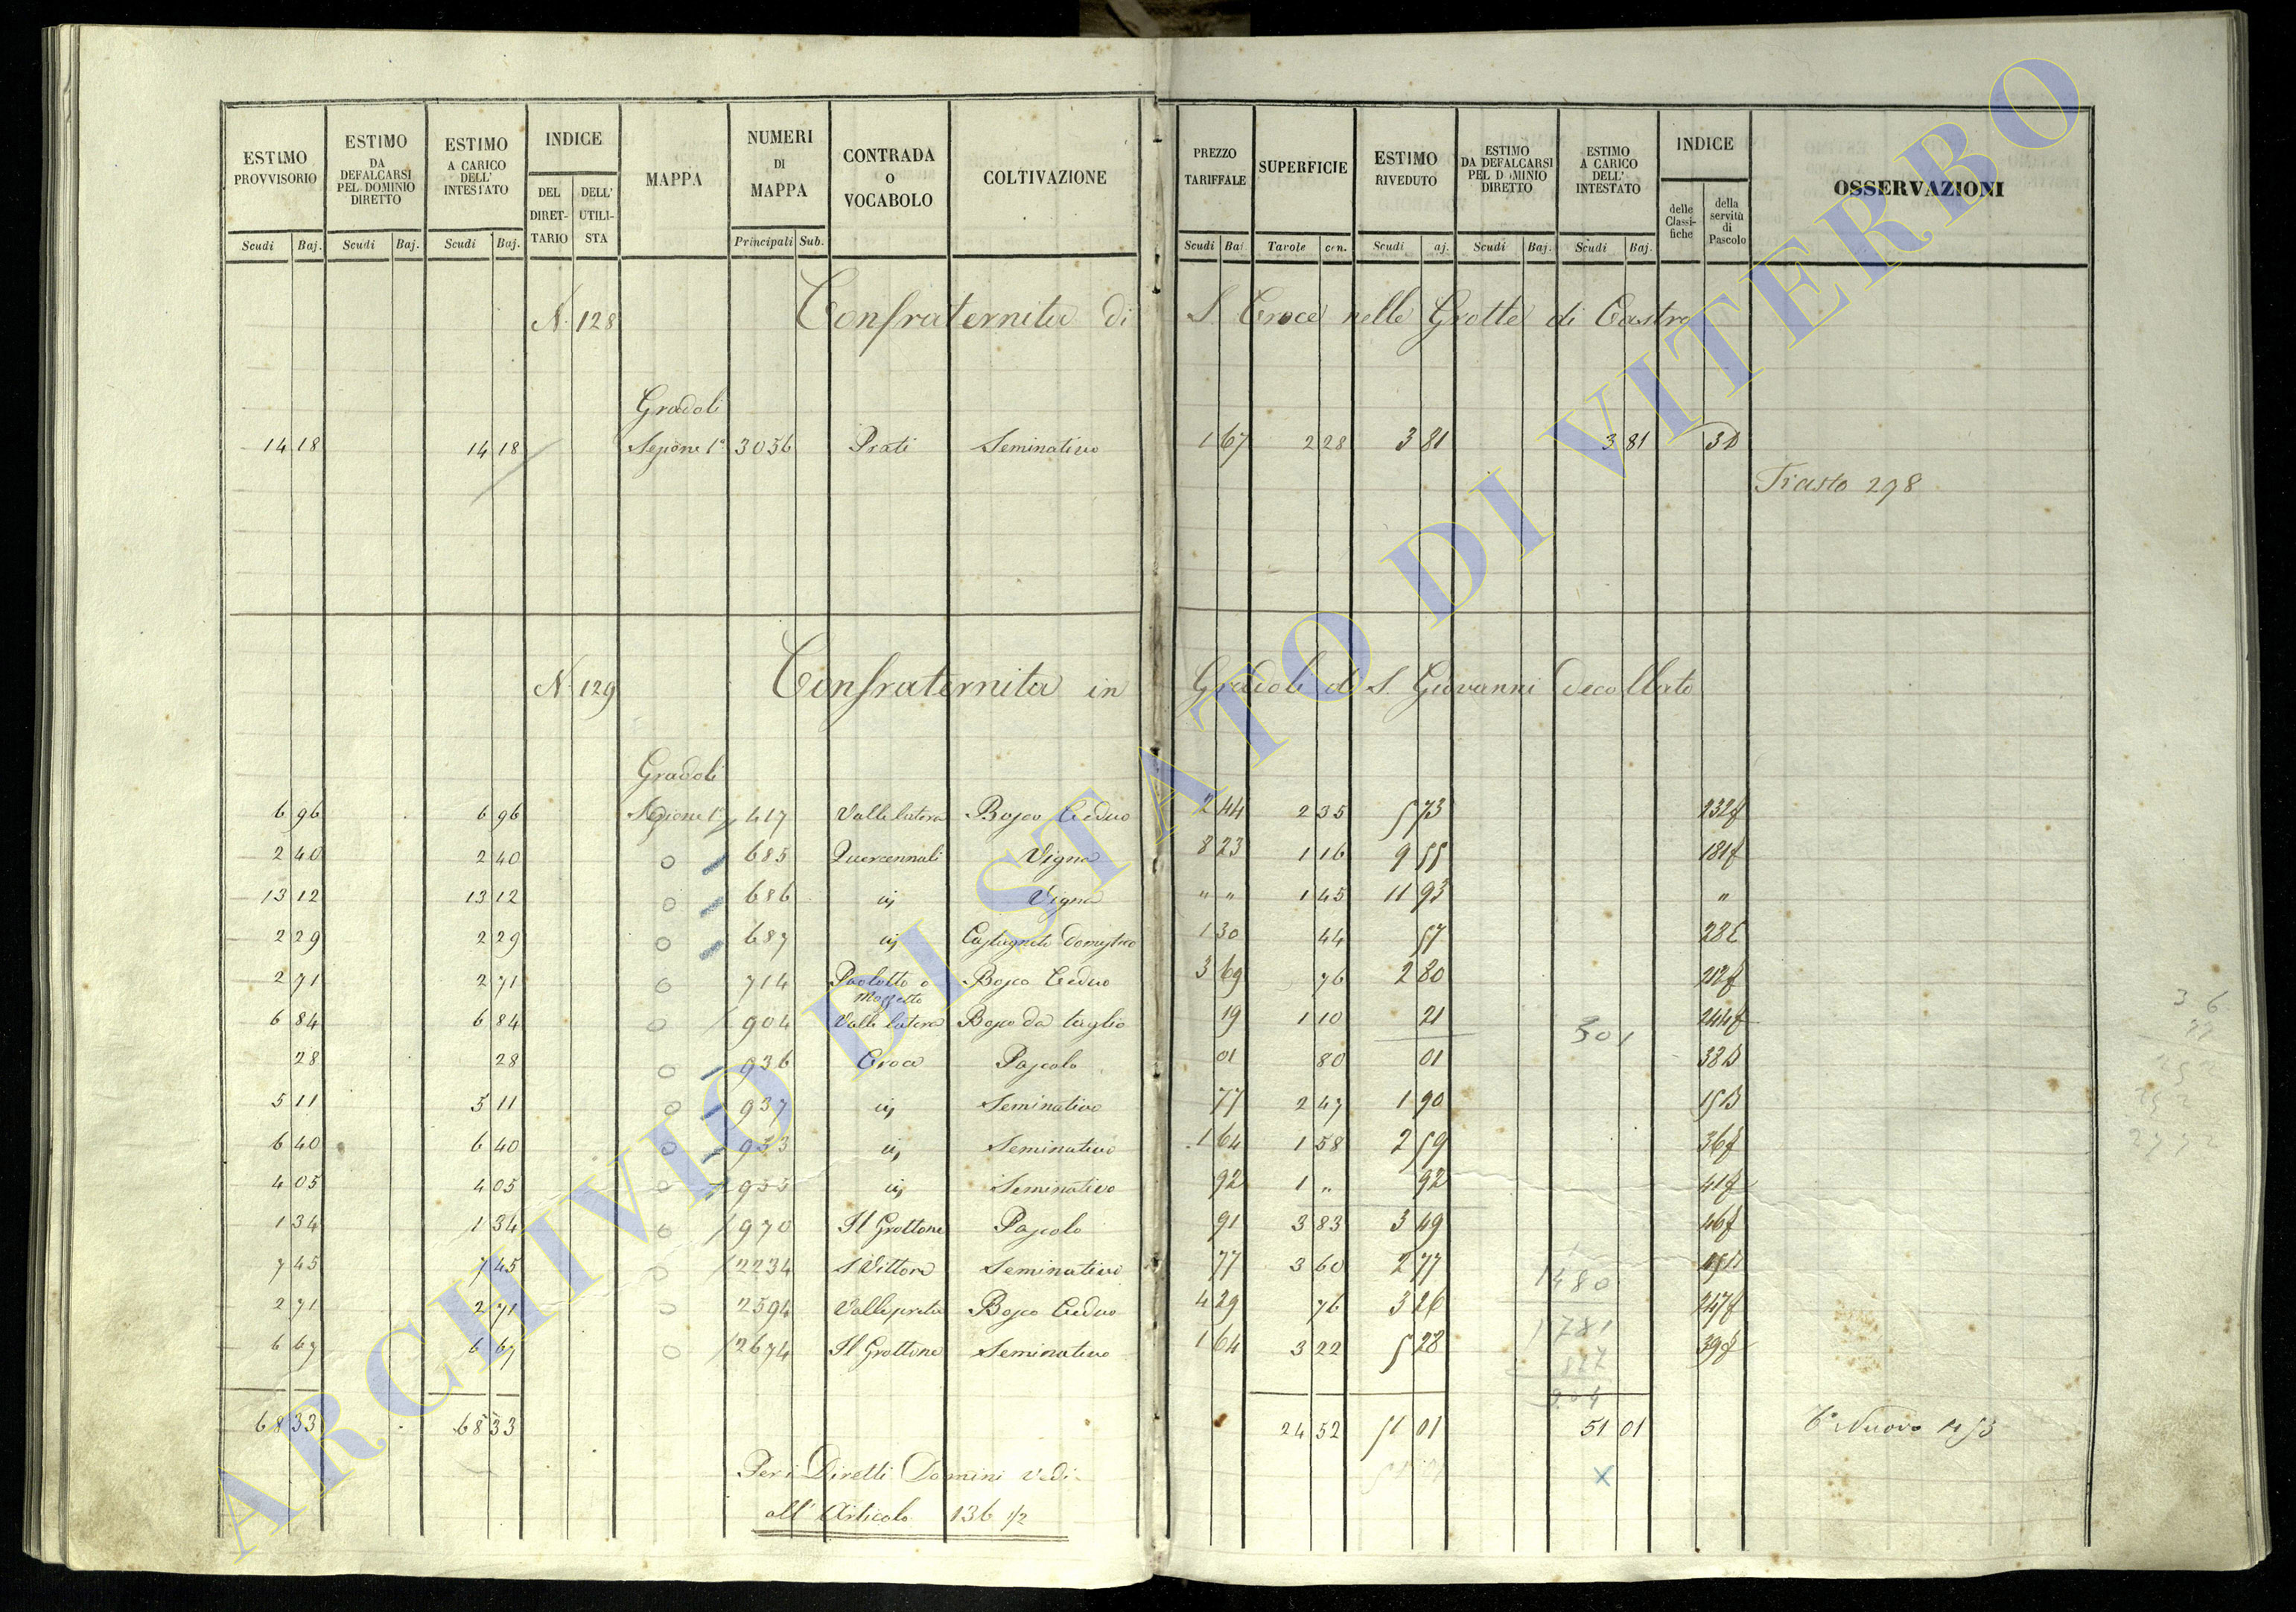 ESTIMO PROVVISORIO | ESTIMO DA DEFALCARSI PEL DOMINIO DIRETTO | ESTIMO A CARICO DELL' INTESTATO | INDICE | MAPPA | NUMERI DI MAPPA | CONTRADA O VOCABOLO | COLTIVAZIONE | PREZZO TARIFFALE | SUPERFICIE | ESTIMO RIVEDUTO | ESTIMO DA DEFALCARSI PEL DOMINIO DIRETTO | ESTIMO A CARICO DELL' INTESTATO | INDICE | OSSERVAZIONI
DEL DIRETTARIO | DELL' UTILISTA | delle Classifiche | della servitù di Pascolo
Scudi | Baj. | Scudi | Baj. | Scudi | Baj. | Principali | Sub. | Scudi | Baj | Tavole | cen. | Scudi | aj. | Scudi | Baj. | Scudi | Baj.
N. 128 Confraternita di S. Croce nelle Grotte di Castro
Gradoli
14 18 | 14 18 | Sezione 1ª | 3036 | Prati | Seminativo | 1 67 | 2 28 | 3 81 | 3 81 | 3D
Trasto 298
N. 129 Confraternita in Gradoli di S. Giovanni decollato
Gradoli
6 96 | 6 96 | Sezione 1ª | 417 | Valle latera | Bosco Ceduo | 2 44 | 2 35 | 5 73 | 232f
2 40 | 2 40 | o | 685 | Quercennali | Vigna | 8 23 | 1 16 | 9 55 | 181f
13 12 | 13 12 | o | 686 | iņ | Vigna | " " | 1 45 | 11 93 | "
2 29 | 2 29 | o | 687 | iņ | Castagneto domestico | 1 30 | 44 | 57 | 28E
2 71 | 2 71 | o | 714 | Paolotto o Mozzetto | Bosco Ceduo | 3 69 | 76 | 2 80 | 212f
6 84 | 6 84 | o | 904 | Valle latera | Bosco da taglio | 19 | 1 10 | 21 | 244f
301
28 | 28 | o | 936 | Croce | Pascolo | 01 | 80 | 01 | 38D
5 11 | 5 11 | o | 937 | iņ | Seminativo | 77 | 2 47 | 1 90 | 15D
6 40 | 6 40 | o | 953 | iņ | Seminativo | 1 64 | 1 58 | 2 59 | 36f
4 05 | 4 05 | o | 955 | iņ | Seminativo | 92 | 1 " | 92 | 41f
1 34 | 1 34 | o | 970 | Il Grottone | Pascolo | 91 | 3 83 | 3 49 | 46f
7 45 | 7 45 | o | 2234 | S. Vittore | Seminativo | 77 | 3 60 | 2 77 | 15D
1480
2 71 | 2 71 | o | 2594 | Valleprata | Bosco Ceduo | 4 29 | 76 | 3 26 | 247f
1781
6 67 | 6 67 | o | 2674 | Il Grottone | Seminativo | 1 64 | 3 22 | 5 28 | 39f
68 33 | 68 33 | 24 52 | 51 01 | 51 01
Per i Diretti Domini vedi
all' Articolo 136 1/2
x
ARCHIVIO DI STATO DI VITERBO